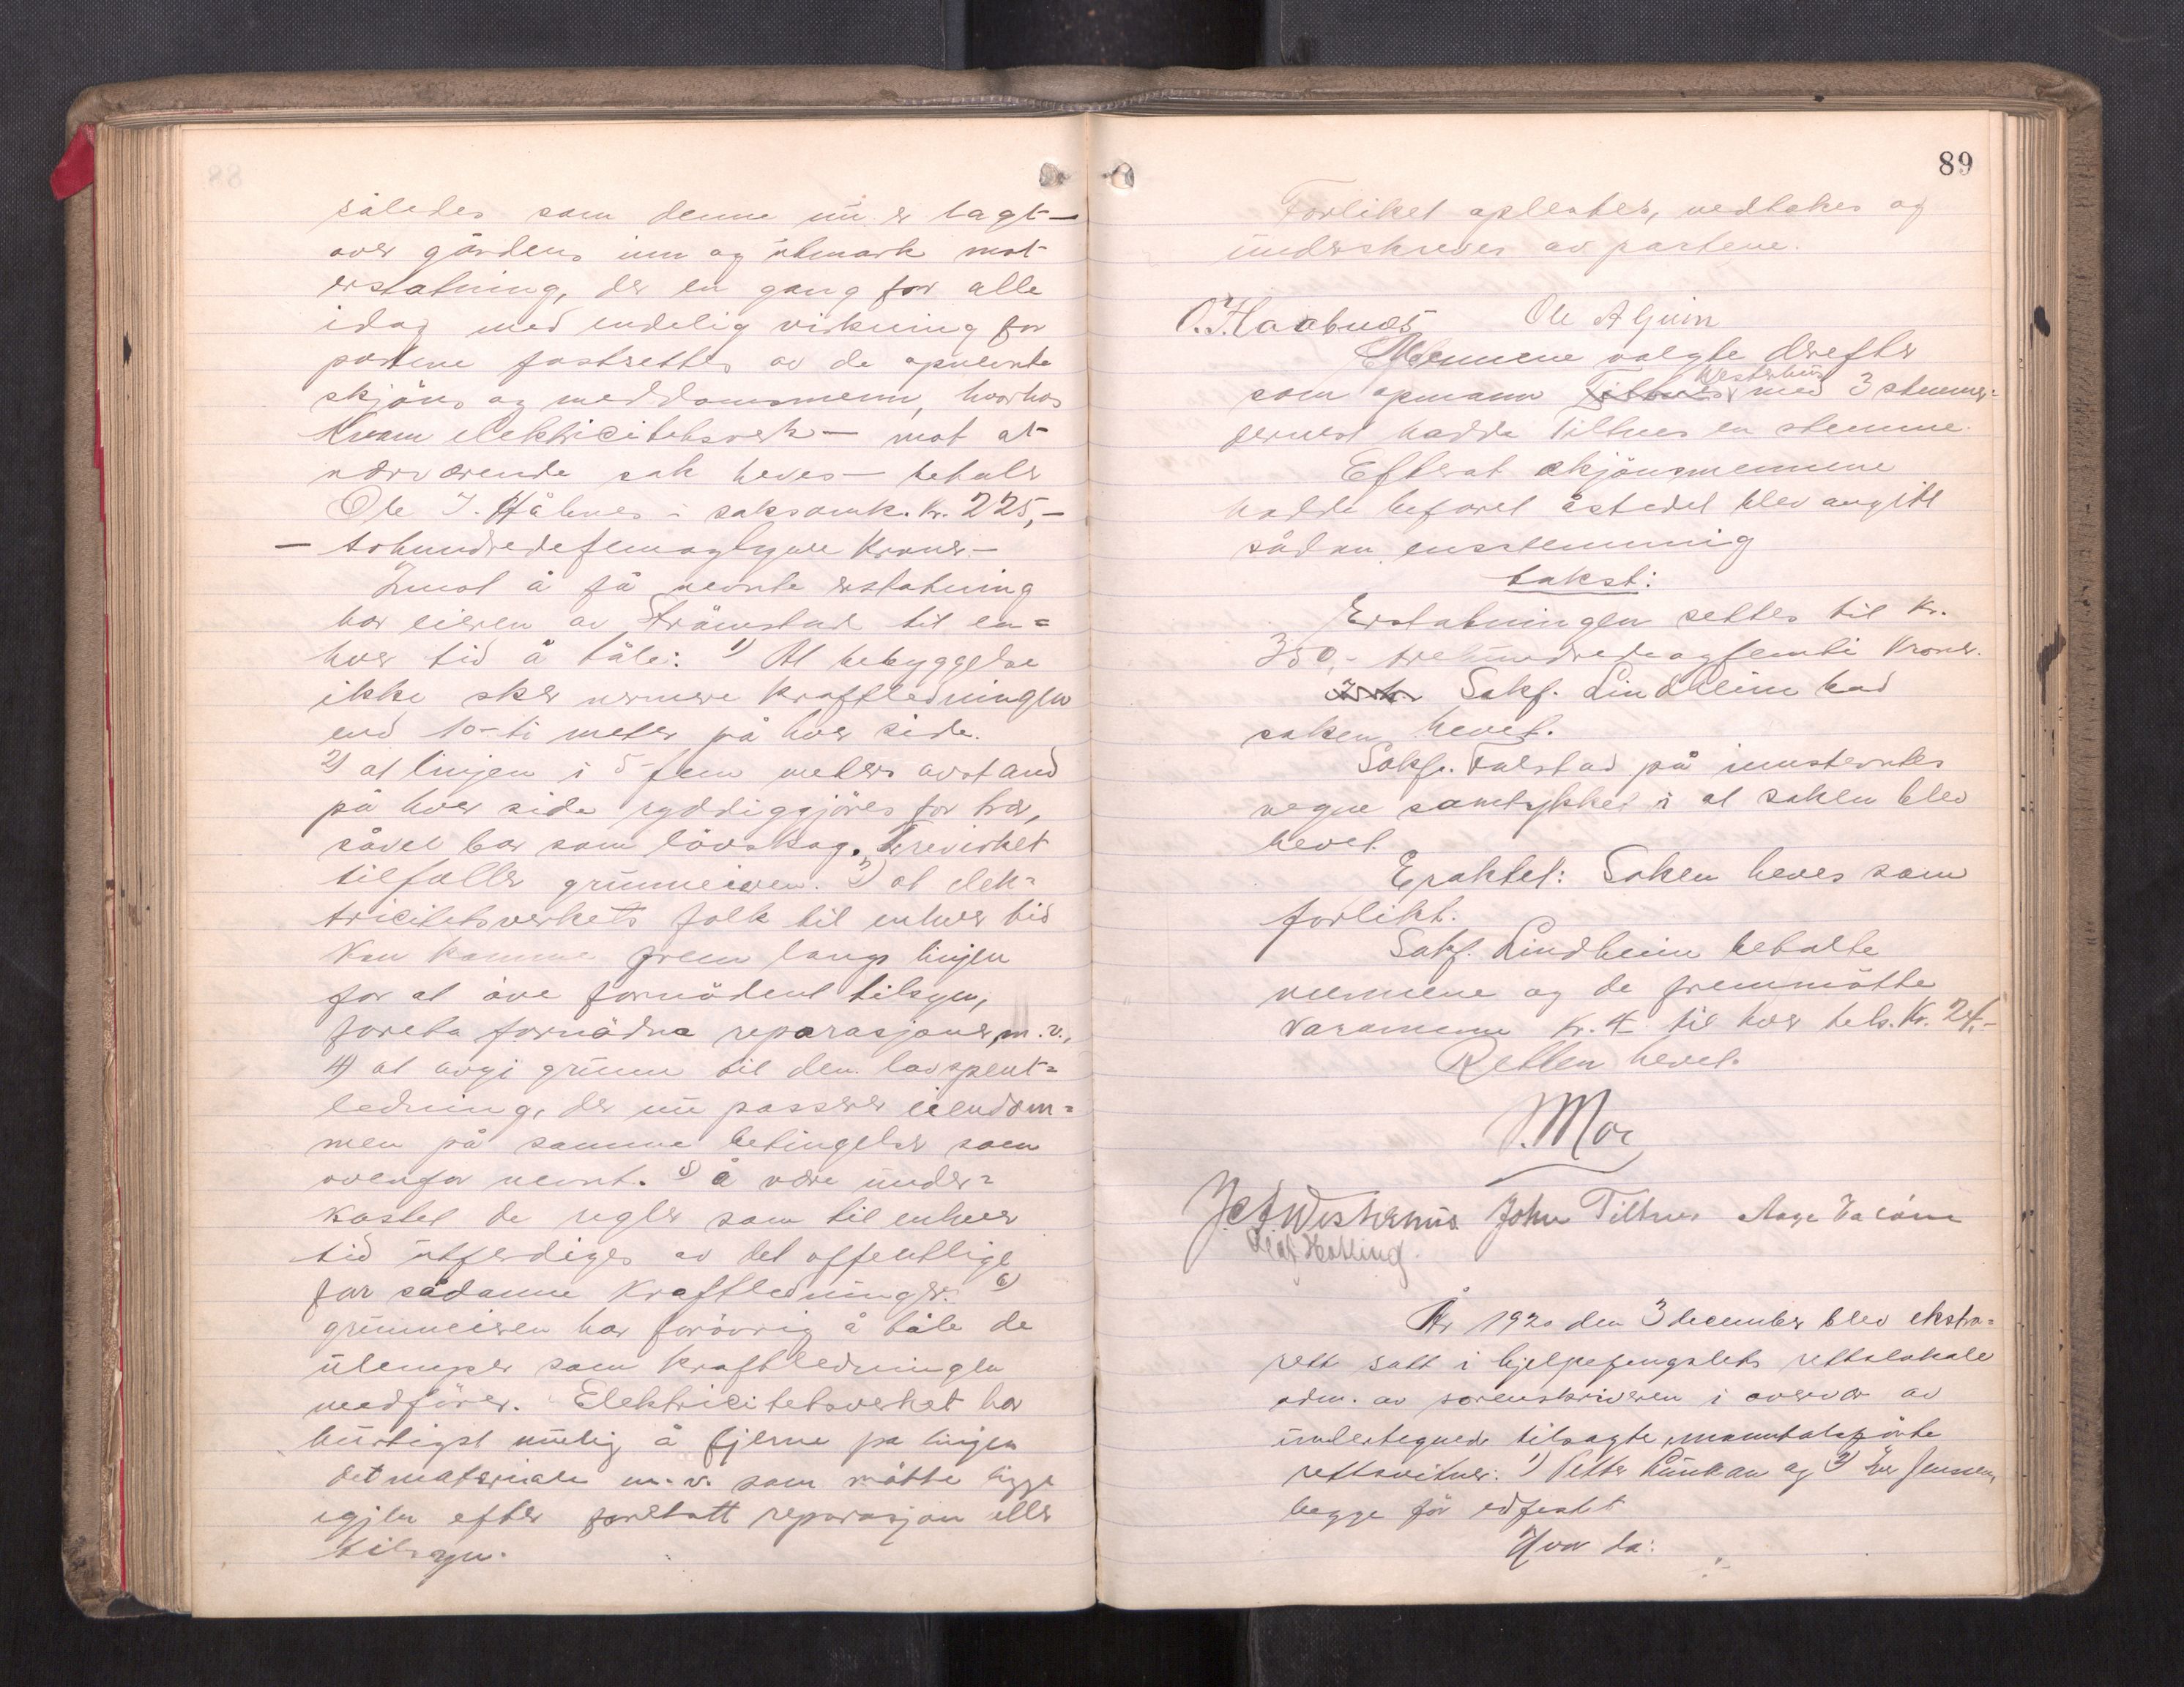 således som denne nu er lagt —
over gårdens inn og utmark mot
erstatning, der en gang for alle
idag med endelig virkning for
partene fastsettes av de opnevnte
skjöns og meddomsmenn, hvorhos
Kvam elektricitetsverk — mot at
nærværende sak heves — betaler
Ole J. Håbnes i saksomk. kr. 225,-
— tohundredefemogtyve kroner. —
Imot å få nevnte erstatning
har eieren av Strömstad til en=
hver tid å tåle: 1) At bebyggelse
ikke sker nermere kraftledningen
end 10 - ti meter på hver side.
2) at linjen i 5 - fem meters avstand
på hver side ryddiggjöres for trær,
såvel bar som lövskog. Trevirket
tilfaller grunneieren. 3) at elek=
tricitetsverkets folk til enhver tid
kan komme frem langs linjen
for at öve fornödent tilsyn,
foreta fornödne reparasjoner, m.v.,
4) at avgi grunn til den lavspent=
ledning, der nu passerer eiendom=
men på samme betingelser som
ovenfor nevnt. 5) å være under=
kastet de regler som til enhver
tid utferdiges av det offentlige
for sådanne kraftledninger. 6)
grunneieren har forövrig å tåle de
ulemper som kraftledningen
medförer. Elektricitetsverket har
hurtigst mulig å fjerne fra linjen
det materiale m.v. som måtte ligge
igjen efter foretatt reparasjon eller
tilsyn.
89
Forliket oplestes, vedtokes og
underskreves av partene.
O. J. Haabnes Ole A Guin
Mennene valgte derefter
Westerhus
som opmann Tiltnes med 3 stemmer.
dernest hadde Tiltnes en stemme.
Efterat skjönsmennene
hadde befaret åstedet blev avgitt
sådan enstemmig
takst:
Erstatningen settes til kr.
350,- trehundredeogfemti kroner.
Sakf. Lindheim bad
saken hevet.
Sakf. Falstad på innstevntes
vegne samtykket i at saken blev
hevet.
Eraktet: Saken heves som
forlikt.
Sakf. Lindheim betalte
mennene og de fremmötte
varamenn kr. 4 til hver tils. kr. 24,-
Retten hevet.
Moe
J. A. Westerhus John Tiltnes Aage
Olaf Holling
År 1920 den 3 december blev ekstra=
rett satt i hjelpefengslets rettslokale
adm. av sorenskriveren i overvær av
undertegnede tilsagte, manntalsförte
rettsvitner: 1) Petter Lunkan og 2) Iver Jensen,
begge för edfestet
Hvor da: